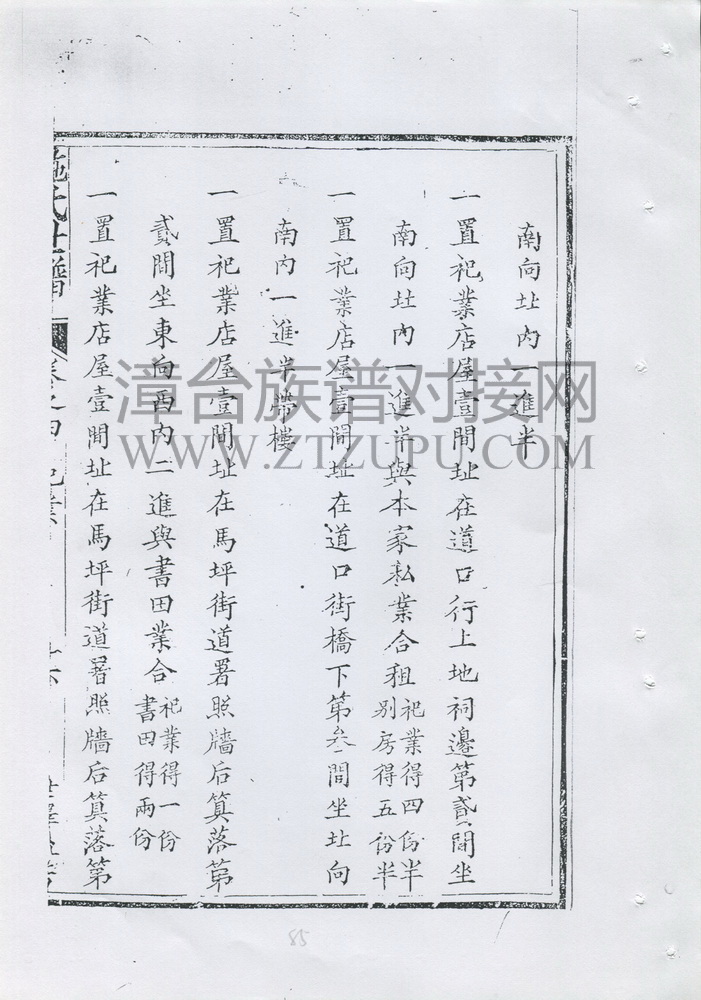 南向址内一進半
一置祀業店屋壹間址在道口行上地祠邊第貳間坐
南向址内一進半與本家私業合租祀業得四份半
别房得五份半
一置祀業店屋壹間址在道口街橋下第叁間坐址向
南内一進半帶樓
一置祀業店屋壹間址在馬坪街道署照牆后箕落第
貳間坐東向西内二進與書田業合祀業得一份
書田得兩份
一置祀業店屋壹間址在馬坪街道署照牆后箕落第
施氏世譜
卷之四
漳台族谱对接网
WWW.ZTZUPU.COM
85